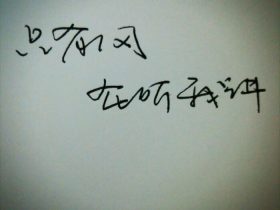 只有风
在听我讲